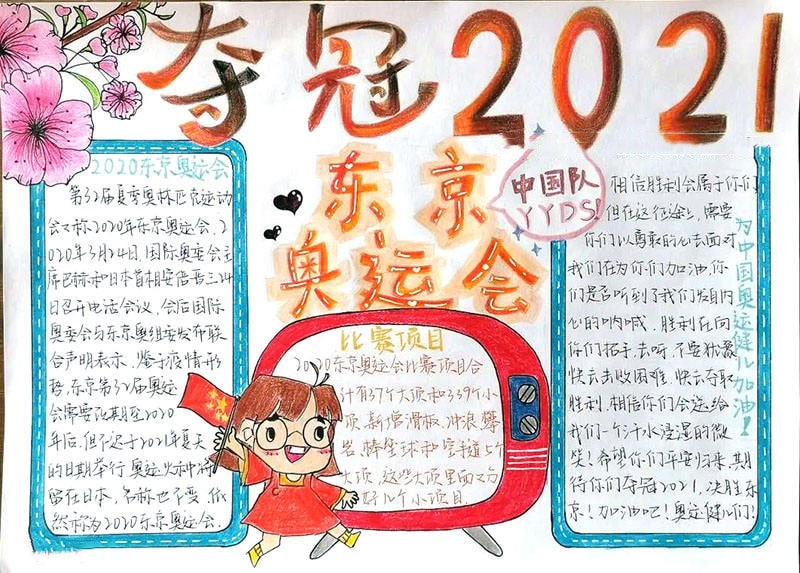 夺冠2021
东京
奥运会
中国队
YYDS!
2020东京奥运会
第32届夏季奥林匹克运动
会又称2020年东京奥运会,2
020年3月24日,国际奥委会主
席巴赫和日本首相安倍晋三24
日召开电话会议,会后国际
奥委会与东京奥组委发布联
合声明表示,鉴于疫情形
势,东京第32届奥运
会需要改期至2020
年后,但不迟于2021年夏天
的日期举行奥运火种将
留在日本,名称也不变依
然称为2020东京奥运会.
比赛项目
2020东京奥运会比赛项目合
计有37个大项和339个小
项,新增滑板,冲浪,攀
岩,棒垒球和空手道5个
大项,这些大项里面又分
好几个小项目.
相信胜利会属于你们
但在这征途上,需要
你们以勇敢的心去面对
我们在为你们加油,你
们是否听到了我们发自内
心的呐喊,胜利在向
你们招手,去呀,不要犹豫
快去击败困难,快去夺取
胜利,相信你们会送给
我们一个汗水浸湿的微
笑!希望你们平安归来,期
待你们夺冠2021,决胜东
京!加油吧!奥运健儿们!
为中国奥运健儿加油!